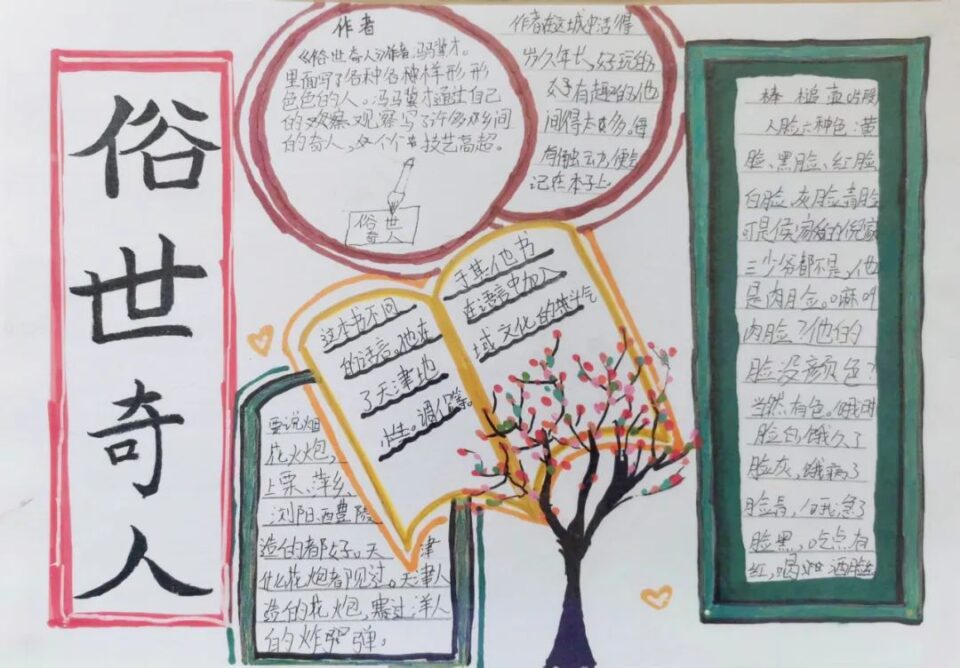 俗世奇人
作者
《俗世奇人》作者冯骥才。
里面写了各种各种样形形
色色的人。冯骥才通过自己
的观察,观察写了许多乡间
的奇人,个个技艺高超。
俗世
奇人
作者在这城中活得
岁久年长,好玩的
有趣的他
间得太多。每
便
记在本子上。
这本书不同
于其他书
的语言。他在
在语言中加入
了天津地
域文化的
性。调
要说烟
花火炮,
上栗、萍乡、
浏阳、醴陵
造的都好。天津
什么花炮都见过。天津人
造的花炮,赛过洋人
的炸弹。
棒槌壶
人脸六种色:黄
脸、黑脸、红脸
白脸、灰脸、青脸
可是侯家的倪家
三少爷都不是,他
是肉脸。嘛叫
肉脸?他的
脸没颜色?
当然有色。饿时
脸白,饿久了
脸灰,饿病了
脸青,饿急了
脸黑,吃点有
红,喝酒脸